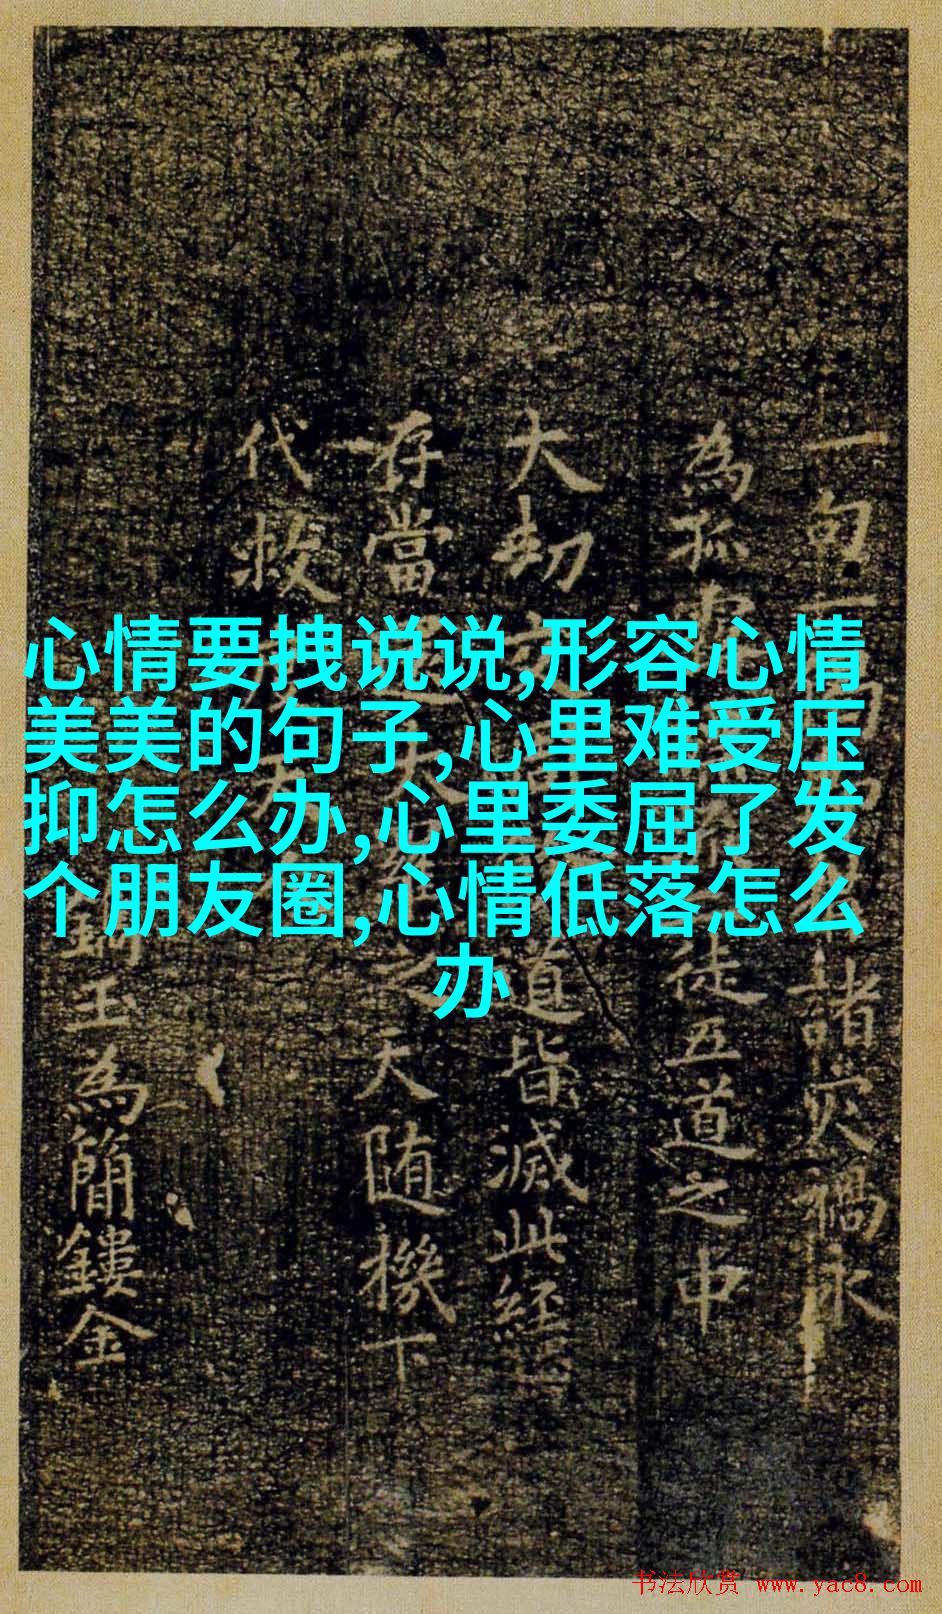 心情要拽说说,形容心情
美美的句子,心里难受压
抑怎么办,心里委屈了发
个朋友圈,心情低落怎么
办
一句一
諸災禍永
為孤
徒五道之中
大劫
道皆滅此經
存當
天之
天随機下
代救
玉為簡鏤金
书法欣赏 www.yac8.com